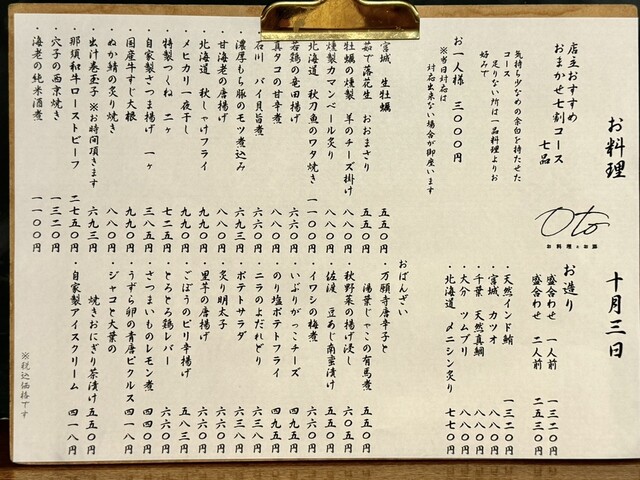 お料理
十月三日
Oto
お料理とお酒
店主おすすめ
おまかせ七割コース
七品
気持ち少なめの余白を持たせた
コース
足りない所は一品料理よりお
好みで
お一人様 三〇〇〇円
※当日対応は
対応出来ない場合が御座います
お造り
盛合わせ 一人前 一三二〇円
盛合わせ 二人前 二五三〇円
・天然インド鮪 一三二〇円
・宮城 カツオ 八八〇円
・千葉 天然真鯛 八八〇円
・大分 ツムブリ 八八〇円
・北海道 メニシン炙り 七七〇円
・宮城 生牡蠣 五五〇円
・茹で落花生 おおまさり 五五〇円
・牡蠣の燻製 羊のチーズ掛け 八八〇円
・燻製カマンベール炙り 八八〇円
・北海道 秋刀魚のワタ焼き 一一〇〇円
・若鶏の竜田揚げ 六六〇円
・真タコの甘辛煮 八八〇円
・石川 バイ貝旨煮 六六〇円
・濃厚もち豚のモツ煮込み 六九三円
・甘海老の唐揚げ 八八〇円
・北海道 秋しゃけフライ 九九〇円
・メヒカリ一夜干し 九九〇円
・特製つくね 二ヶ 七二五円
・自家製さつま揚げ 一ヶ 三八五円
・国産牛すじ大根 八八〇円
・ぬか鯖の炙り焼き 八八〇円
・出汁巻玉子 ※お時間頂きます 六九三円
・那須和牛ローストビーフ 二七五〇円
・穴子の西京焼き 一三二〇円
・海老の純米酒煮 一一〇〇円
おばんざい
・万願寺唐辛子と
湯葉じゃこの有馬煮 五五〇円
・秋野菜の揚げ浸し 六〇五円
・佐渡 豆あじ南蛮漬け 六六〇円
・イワシの梅煮 五五〇円
・いぶりがっこチーズ 四九五円
・のり塩ポテトフライ 四九五円
・ニラのよだれどり 六三八円
・ポテトサラダ 六三八円
・炙り明太子 六六〇円
・里芋の唐揚げ 六六〇円
・ごぼうのピリ辛揚げ 五八三円
・とろとろ鶏レバー 五八三円
・さつまいものレモン煮 四四〇円
・うずら卵の青唐ピクルス 四一八円
・ジャコと大葉の
焼きおにぎり茶漬け 五五〇円
・自家製アイスクリーム 四一八円
※税込価格です